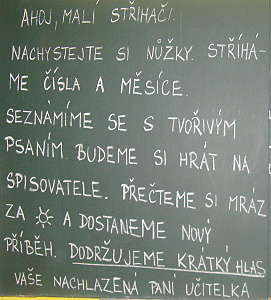 AHOJ, MALÍ STŘIHAČI.
NACHYSTEJTE SI NŮŽKY. STŘÍHÁ-
ME ČÍSLA A MĚSÍCE.
SEZNÁMÍME SE S TVOŘIVÝM
PSANÍM. BUDEME SI HRÁT NA
SPISOVATELE. PŘEČTEME SI MRÁZ
ZA ☼ A DOSTANEME NOVÝ
PŘÍBĚH. DODRŽUJEME KRÁTKÝ HLAS
VAŠE NACHLAZENÁ PANÍ UČITELKA